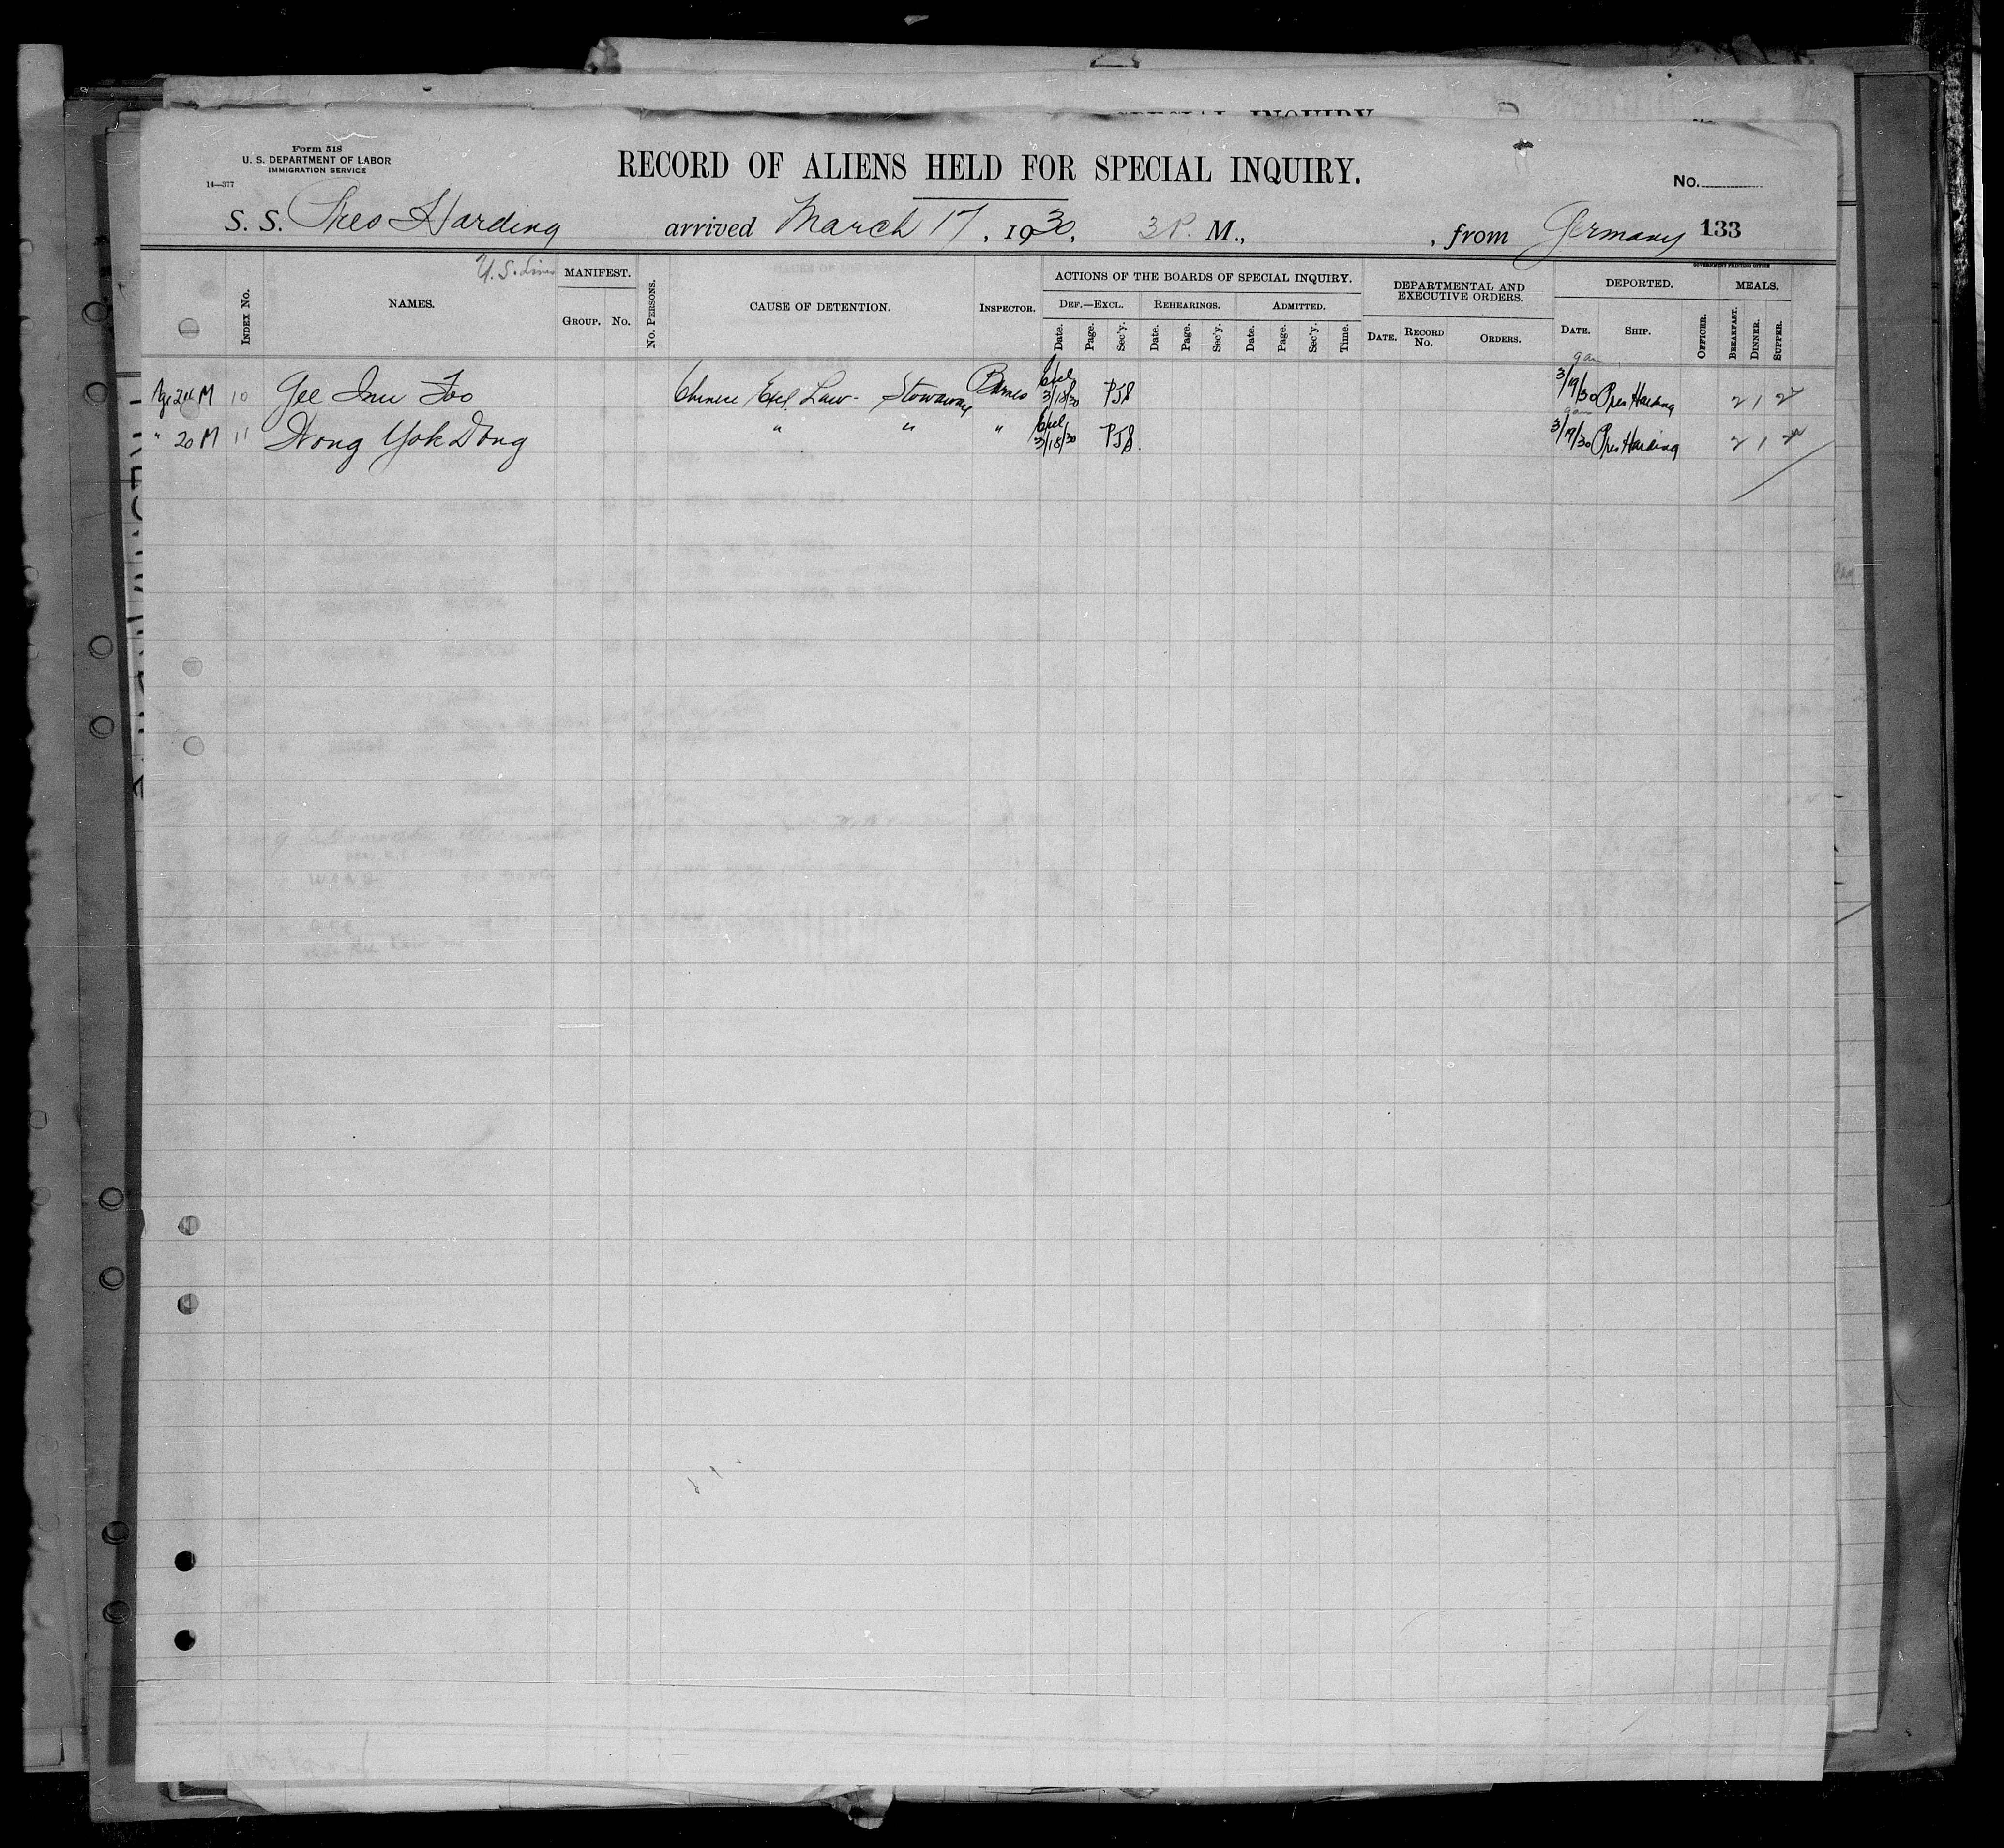 SPECIAL INQUIRY
Form 518
U. S. DEPARTMENT OF LABOR
IMMIGRATION SERVICE
14—377
RECORD OF ALIENS HELD FOR SPECIAL INQUIRY.
No.
S. S. Pres Harding arrived March 17, 1930, 3 P. M., , from Germany 133
U.S. Lines
GOVERNMENT PRINTING OFFICE
INDEX NO. NAMES. MANIFEST. GROUP. NO. NO. PERSONS. CAUSE OF DETENTION. INSPECTOR. ACTIONS OF THE BOARDS OF SPECIAL INQUIRY. DEF.—EXCL. Date. Page. Sec'y. REHEARINGS. Date. Page. Sec'y. ADMITTED. Date. Page. Sec'y. Time. DEPARTMENTAL AND EXECUTIVE ORDERS. DATE. RECORD NO. ORDERS. DEPORTED. DATE. SHIP. OFFICER. MEALS. BREAKFAST. DINNER. SUPPER.
Age 24 M 10 Gee Foo Chinese Excl. Law - Stowaway Barnes Excl 3/18/30 PJS 9am 3/19/30 Pres Harding 2 1 2
" 20 M 11 Wong Yok Dong " " " Excl 3/18/30 PJS. 9am 3/19/30 Pres Harding 2 1 2